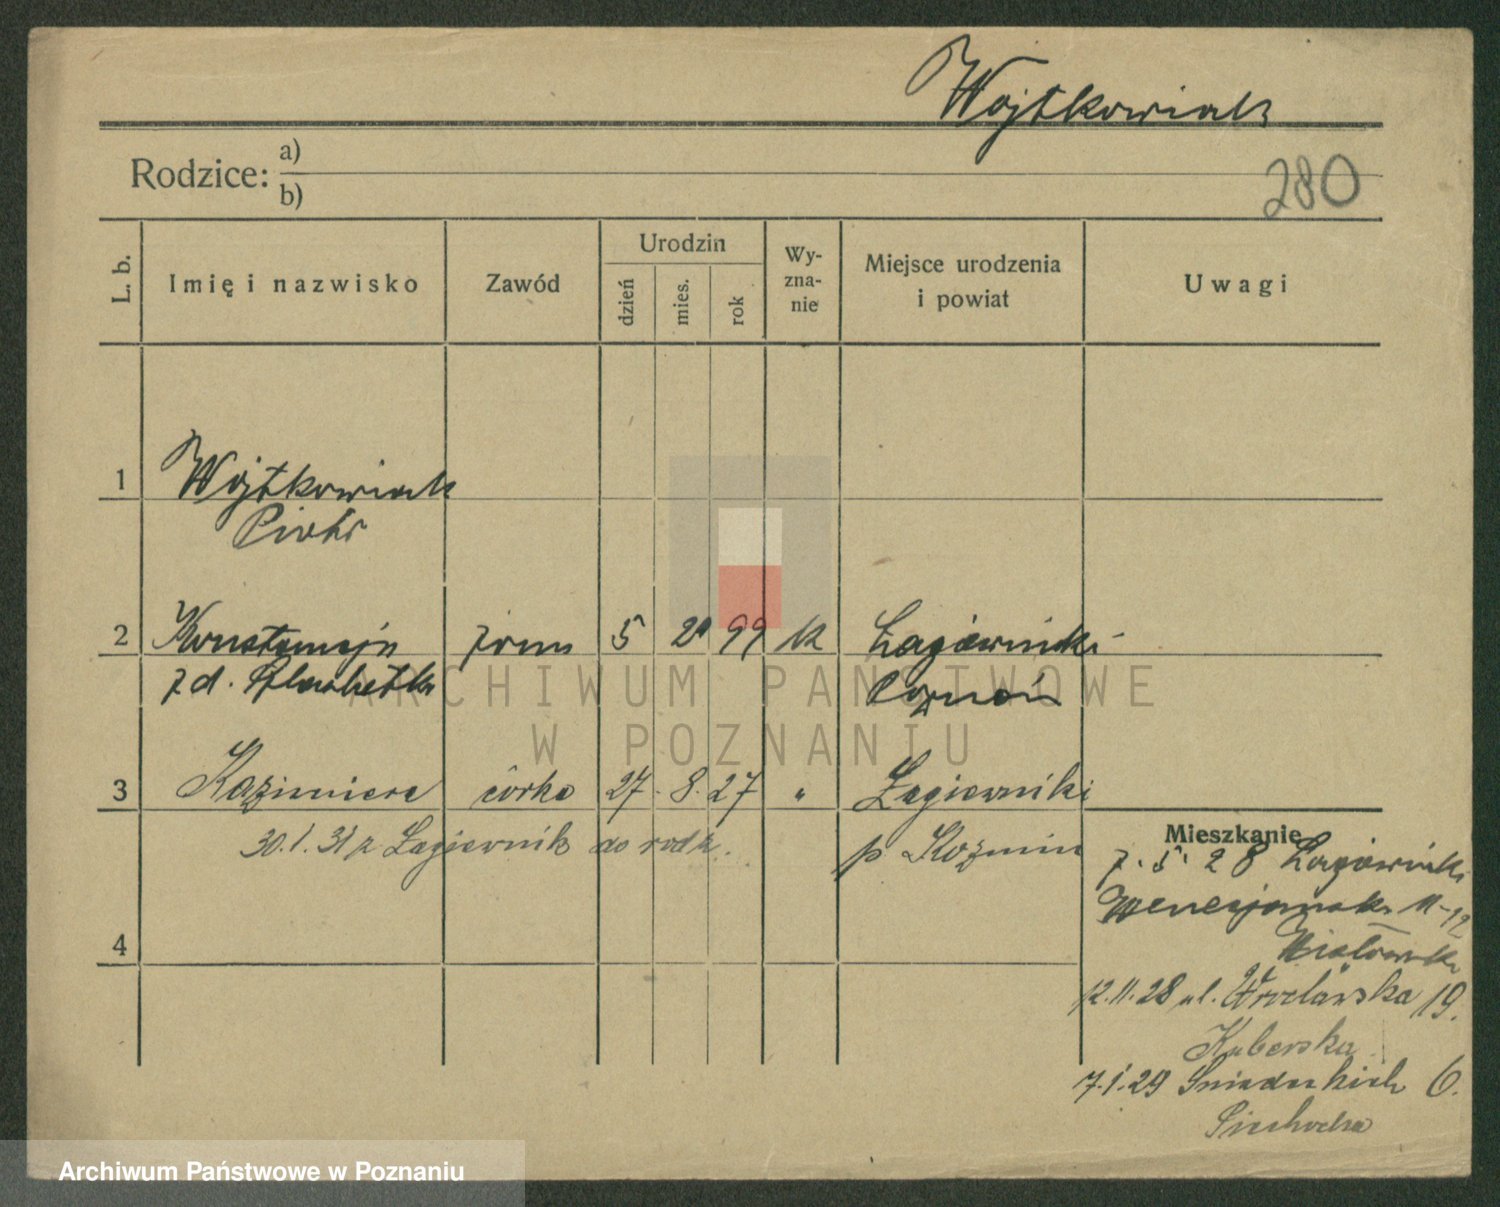 Wojtkowiak
Rodzice: a)
b)
280
L. b.
Imię i nazwisko
Zawód
Urodzin
dzień
mies.
rok
Wy-
zna-
nie
Miejsce urodzenia
i powiat
Uwagi
1 Wojtkowiak
Piotr
2 żona 5 2 99 k Łagiewniki
z d. Poznań
3 Kazimiera córka 27. 8. 27 " Łagiewniki
30.1.31 z Łagiewnik do rodz. p Koźmin
4
Mieszkanie
7. 5. 28 Łagiewniki
11-12
12.11.28 ul. Wrocławska 19.
Kuberska
7.1.29 Śniadeckich 6.
ARCHIWUM PAŃSTWOWE
W POZNANIU
Archiwum Państwowe w Poznaniu